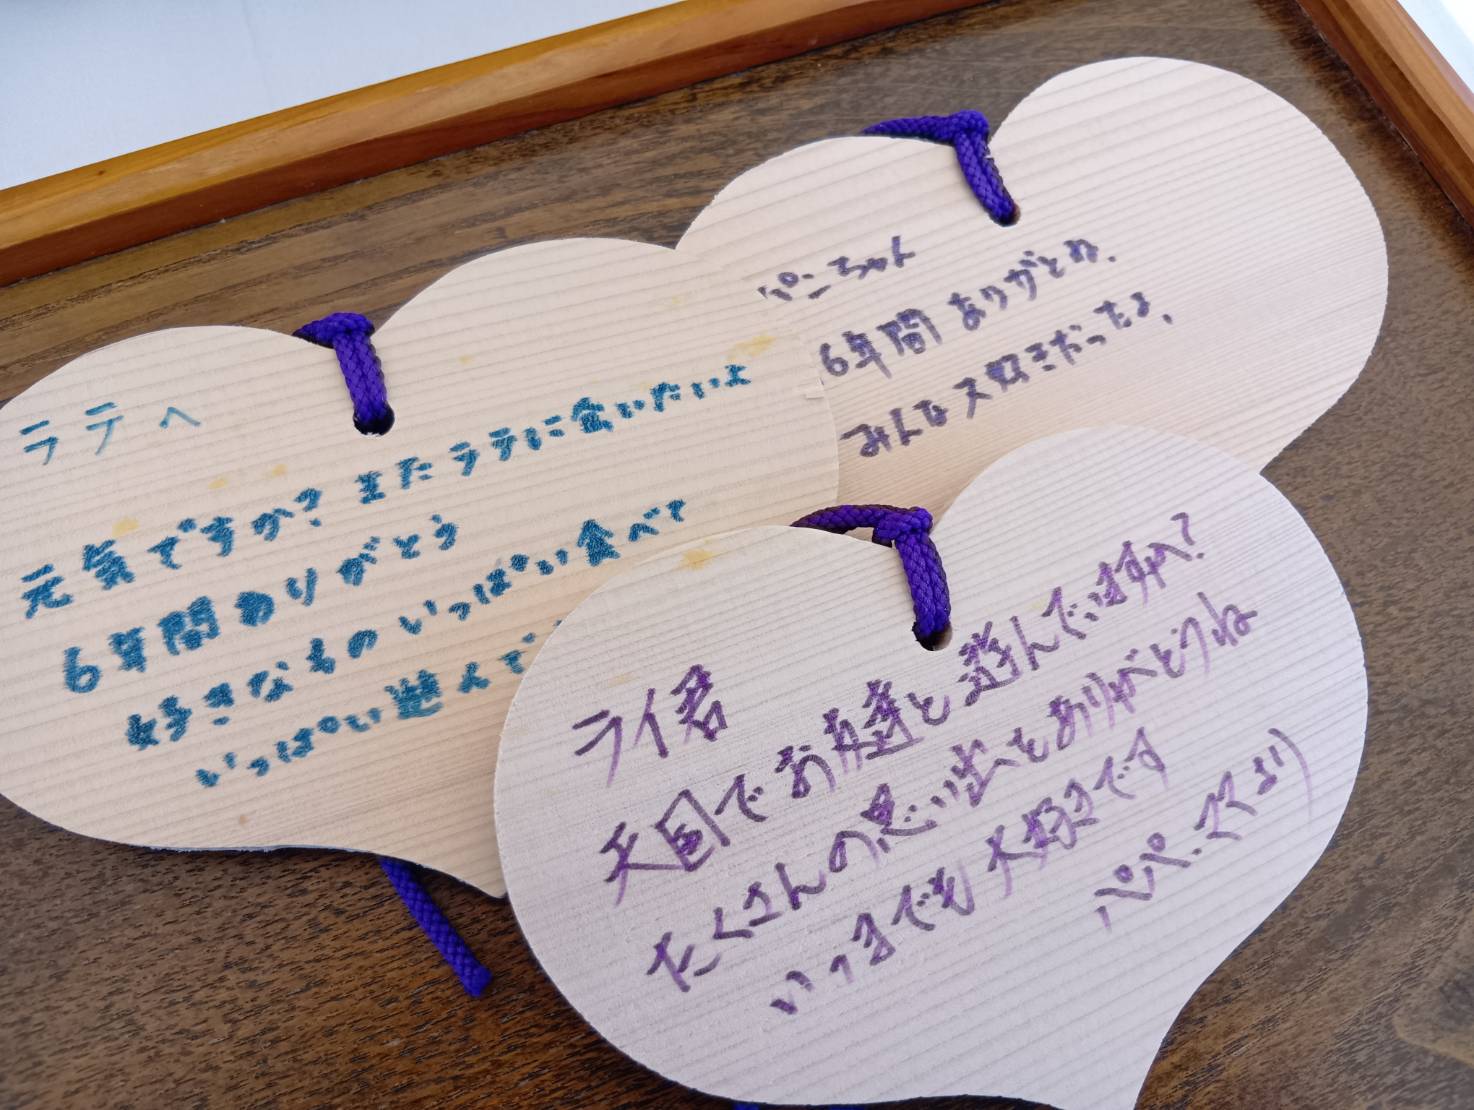 ラテへ
元気ですか? またラテに会いたいよ
6年間ありがとう
好きなものいっぱい食べて
いっぱい遊んで
ぺこちゃん
6年間ありがとね、
みんな大好きだったよ、
ライ君
天国でお友達と遊んでいますか?
たくさんの思い出をありがとうね
いつまでも大好きです
パパ、ママより